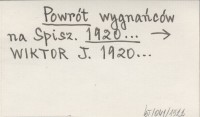 Powrót wygnańców
na Spisz. 1920... →
WIKTOR J. 1920...